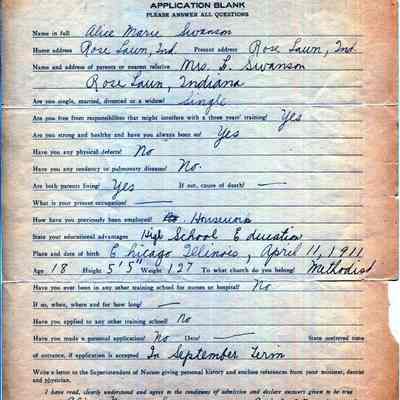 APPLICATION BLANK
PLEASE ANSWER ALL QUESTIONS
Name in full Alice Marie Swanson
Home address Rose Lawn, Ind Present address Rose Lawn, Ind.
Name and address of parents or nearest relative Mrs. L. Swanson
Rose Lawn, Indiana
Are you single, married, divorced or a widow? Single
Are you free from responsibilities that might interfere with a three years' training? Yes
Are you strong and healthy and have you always been so? Yes
Have you any physical defects? No
Have you any tendency to pulmonary disease? No.
Are both parents living? Yes If not, cause of death? —
What is your present occupation? —
How have you previously been employed? Housework
State your educational advantages High School Education
Place and date of birth Chicago Illinois, April 11, 1911
Age 18 Height 5'5" Weight 127 To what church do you belong? Methodist
Have you ever been in any other training school for nurses or hospital? No
If so, when, where and for how long? —
Have you applied to any other training school? No
Have you made a personal application? No Date? — State preferred time
of entrance, if application is accepted In September Term
Write a letter to the Superintendent of Nurses giving personal history and enclose references from your minister, dentist
and physician.
I have read, clearly understand and agree to the conditions of admission and declare answers given to be true